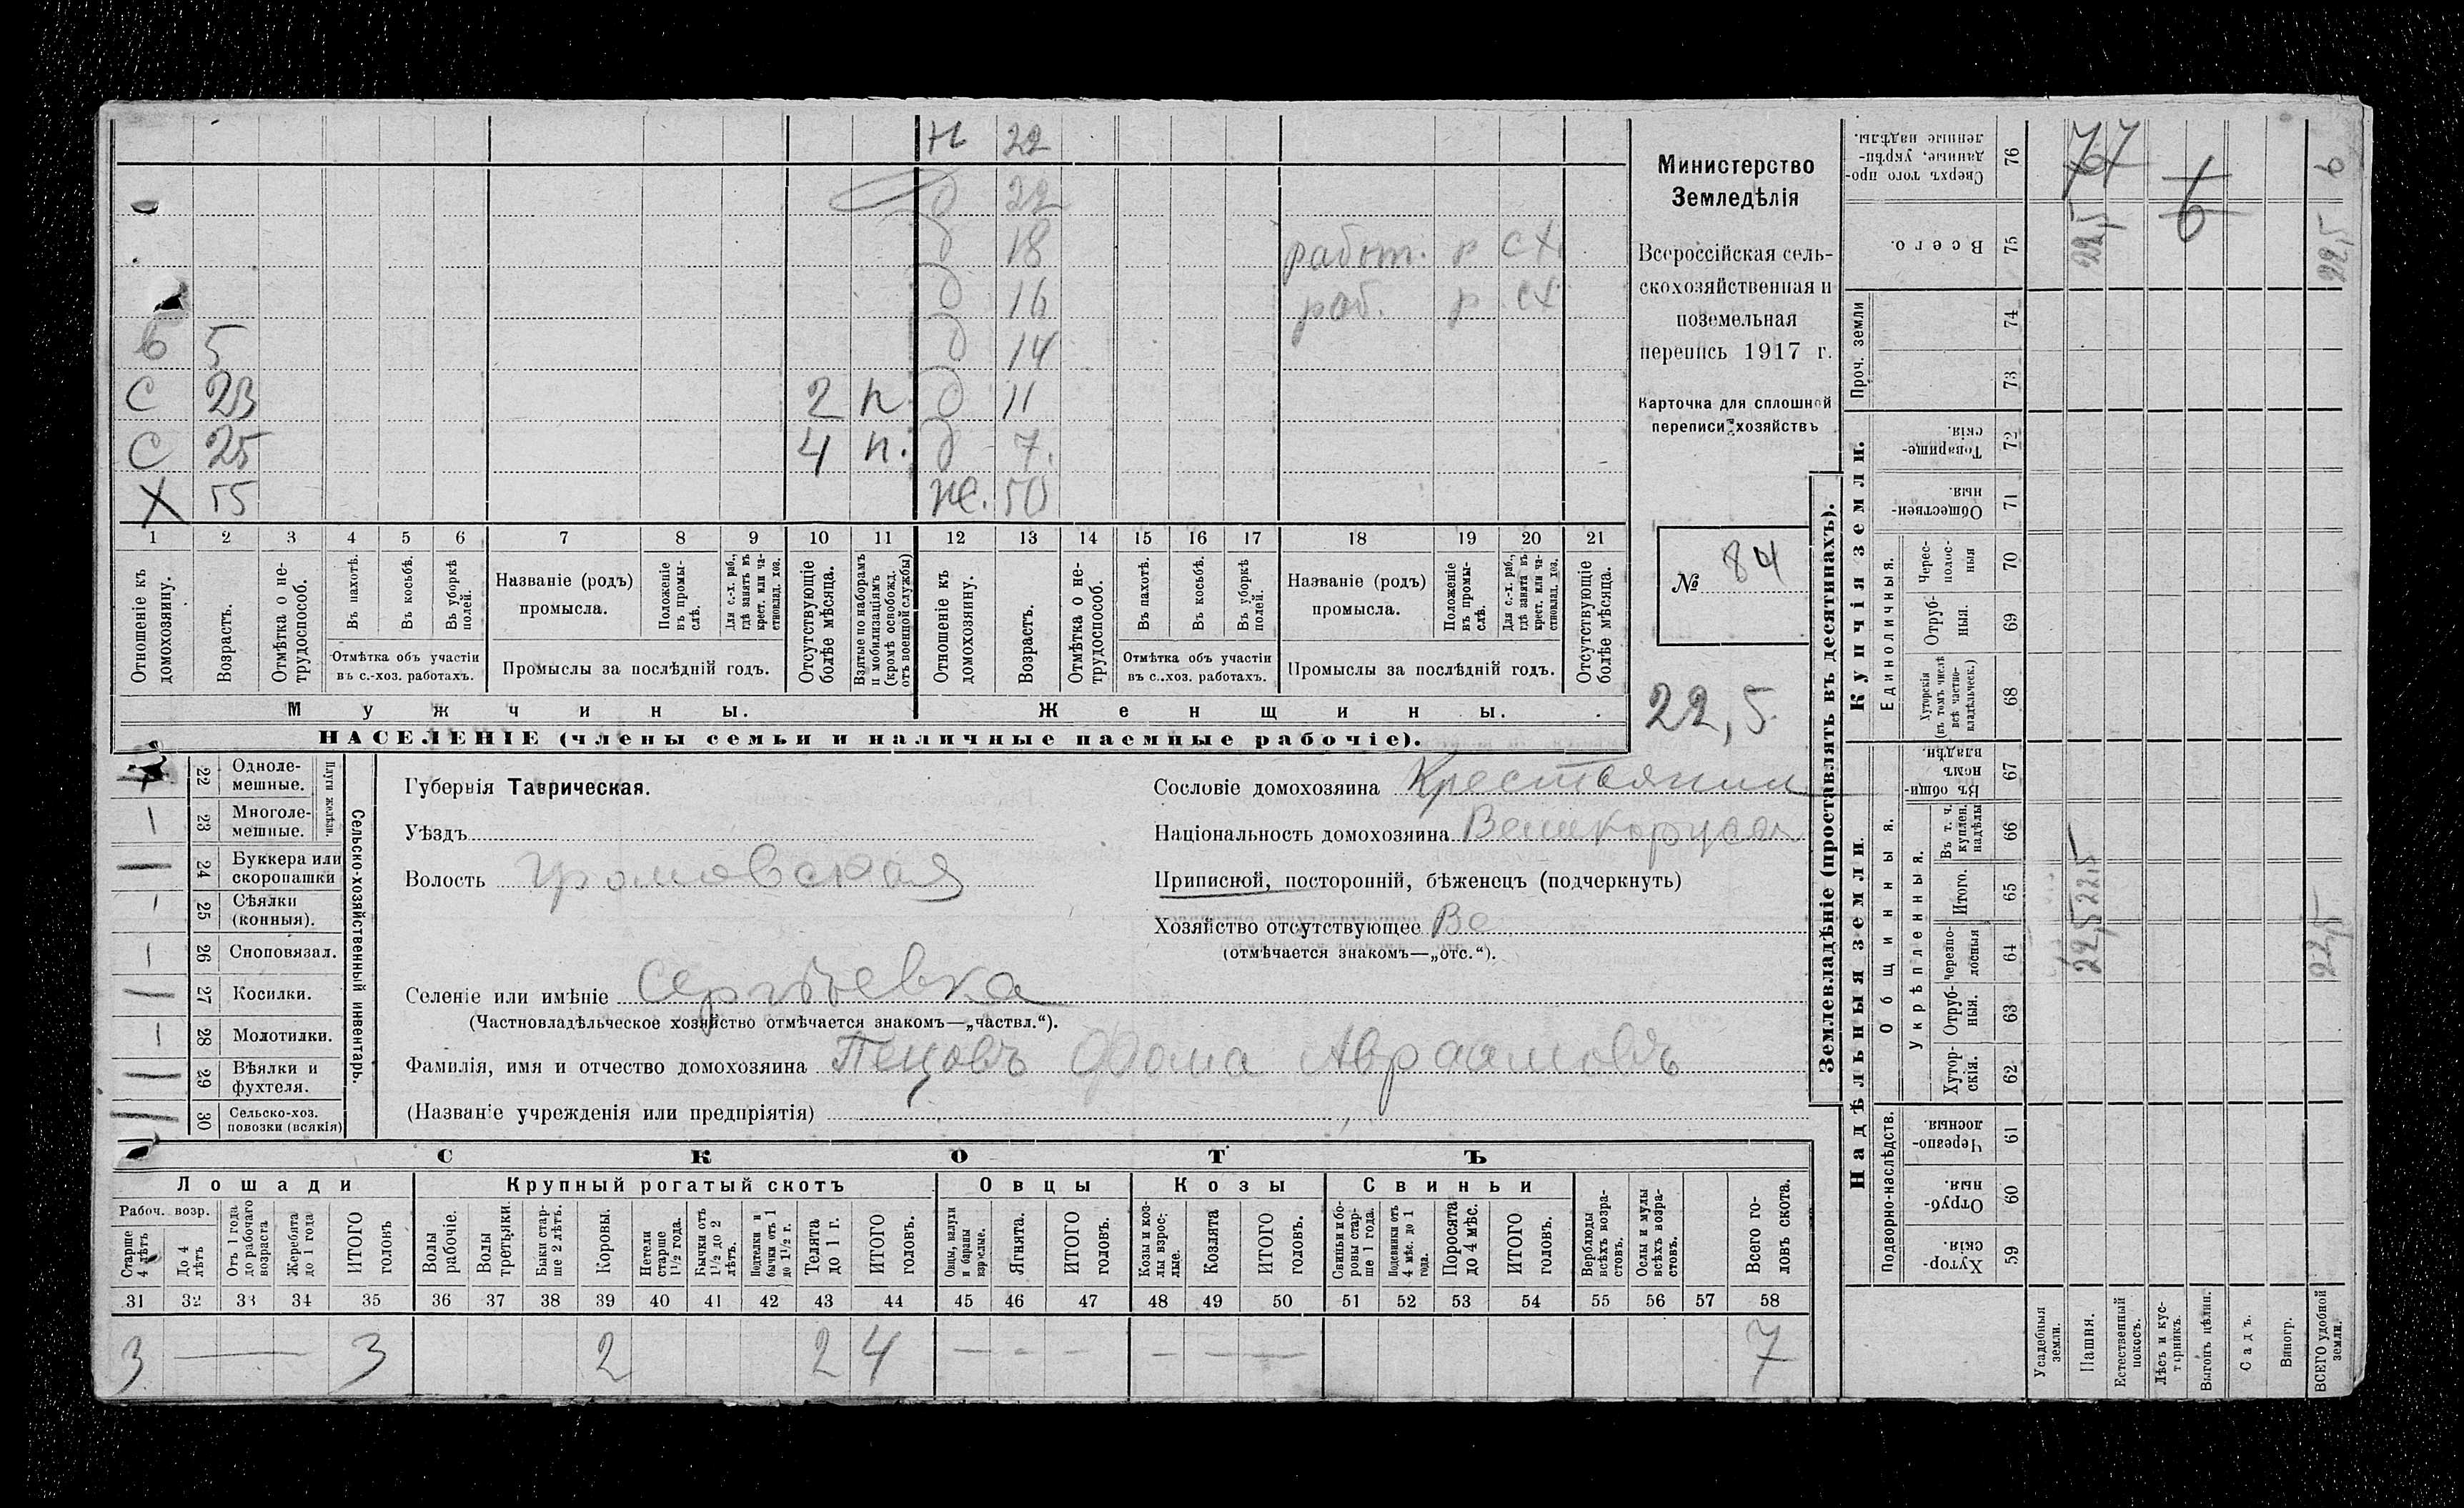 Н 22
д 22
д 18 работ. р сх.
д 16 раб. р сх
б 5 д 14
С 23 2 п. д 11
С 25 4 п. д 7.
Х 55 же. 50
1 2 3 4 5 6 7 8 9 10 11 12 13 14 15 16 17 18 19 20 21
Отношеніе къ домохозяину.
Возрастъ.
Отмѣтка о не-трудоспособ.
Въ пахотѣ.
Въ косьбѣ.
Въ уборкѣ полей.
Отмѣтка объ участіи въ с.-хоз. работахъ.
Названіе (родъ) промысла.
Положеніе въ промы-слѣ.
Для с.-х. раб., гдѣ занятъ въ крест. или ча-стновлад. хоз.
Промыслы за послѣдній годъ.
Отсутствующіе болѣе мѣсяца.
Взятые по наборамъ и мобилизаціямъ (кромѣ освобожд. отъ военной службы)
Отношеніе къ домохозяину.
Возрастъ.
Отмѣтка о не-трудоспособ.
Въ пахотѣ.
Въ косьбѣ.
Въ уборкѣ полей.
Отмѣтка объ участіи въ с..хоз. работахъ.
Названіе (родъ) промысла.
Положеніе въ промы-слѣ.
Для с.-х. раб., гдѣ занята въ крест. или ча-стновлад. хоз.
Промыслы за послѣдній годъ.
Отсутствующіе болѣе мѣсяца.
Мужчины.
Женщины.
НАСЕЛЕНІЕ (члены семьи и наличные наемные рабочіе).
Министерство
Земледѣлія
Всероссійская сель-
скохозяйственная и
поземельная
перепись 1917 г.
Карточка для сплошной
переписи хозяйствъ
№ 84
22,5.
22 Одноле-мешные.
23 Многоле-мешные.
Плуги желѣзн.
24 Буккера или скоропашки
25 Сѣялки (конныя).
26 Сноповязал.
27 Косилки.
28 Молотилки.
29 Вѣялки и фухтеля.
30 Сельско-хоз. повозки (всякія)
Сельско-хозяйственный инвентарь.
Губернія Таврическая.
Уѣздъ
Волость Громовская
Селеніе или имѣніе Сергѣевка
(Частновладѣльческое хозяйство отмѣчается знакомъ—„частвл.“).
Фамилія, имя и отчество домохозяина Пецовъ Фома Авраамовъ
(Названіе учрежденія или предпріятія)
Сословіе домохозяина Крестьянин
Національность домохозяина Великорусъ
Приписной, посторонній, бѣженецъ (подчеркнуть)
Хозяйство отсутствующее Вс
(отмѣчается знакомъ—„отс.“).
СКОТЪ
Лошади
Крупный рогатый скотъ
Овцы
Козы
Свиньи
Рабоч. возр.
Старше 4 лѣтъ
До 4 лѣтъ
Отъ 1 года до рабочаго возраста
Жеребята до 1 года
ИТОГО головъ
Волы рабочіе.
Волы третьяки.
Быки стар-ше 2 лѣтъ.
Коровы.
Нетели старше 1½ года.
Бычки отъ 1½ до 2 лѣтъ.
Подтелки и бычки отъ 1 до 1½ г.
Телята до 1 г.
ИТОГО головъ.
Овцы, валухи и бараны взрослые.
Ягнята.
ИТОГО головъ.
Козы и коз-лы взрос-лые.
Козлята
ИТОГО головъ.
Свиньи и бо-ровы стар-ше 1 года.
Подсвинки отъ 4 мѣс. до 1 года.
Поросята до 4 мѣс.
ИТОГО головъ.
Верблюды всѣхъ возра-стовъ.
Ослы и мулы всѣхъ возра-стовъ.
Всего го-ловъ скота.
31 32 33 34 35 36 37 38 39 40 41 42 43 44 45 46 47 48 49 50 51 52 53 54 55 56 57 58
3 — 3 2 2 4 — — — — — — 7
Землевладѣніе (проставлять въ десятинахъ).
Надѣльныя земли.
Купчія земли.
Проч. земли
Подворно-наслѣдств.
Общинныя.
Укрѣпленныя.
Единоличныя.
76 Сверхъ того про-данные, укрѣп-ленные надѣлы.
75 Всего.
74
73
72 Товарище-скія.
71 Обществен-ныя.
70 Черес-полос-ныя
69 Отруб-ныя.
68 Хуторскія (въ томъ числѣ всѣ частно-владѣльческ.)
67 Въ общи-номъ владѣн.
66 Въ т. ч. куплен. надѣлы
65 Итого.
64 Черезпо-лосныя
63 Отруб-ныя.
62 Хутор-скія.
61 Черезпо-лосныя.
60 Отруб-ныя.
59 Хутор-скія.
Усадебныя земли.
Пашня.
Естественный покосъ.
Лѣсъ и кус-тарникъ.
Выгонъ цѣлин.
Садъ.
Виногр.
ВСЕГО удобной земли.
22,5
6
22,5 6
22,5 22,5
22,5